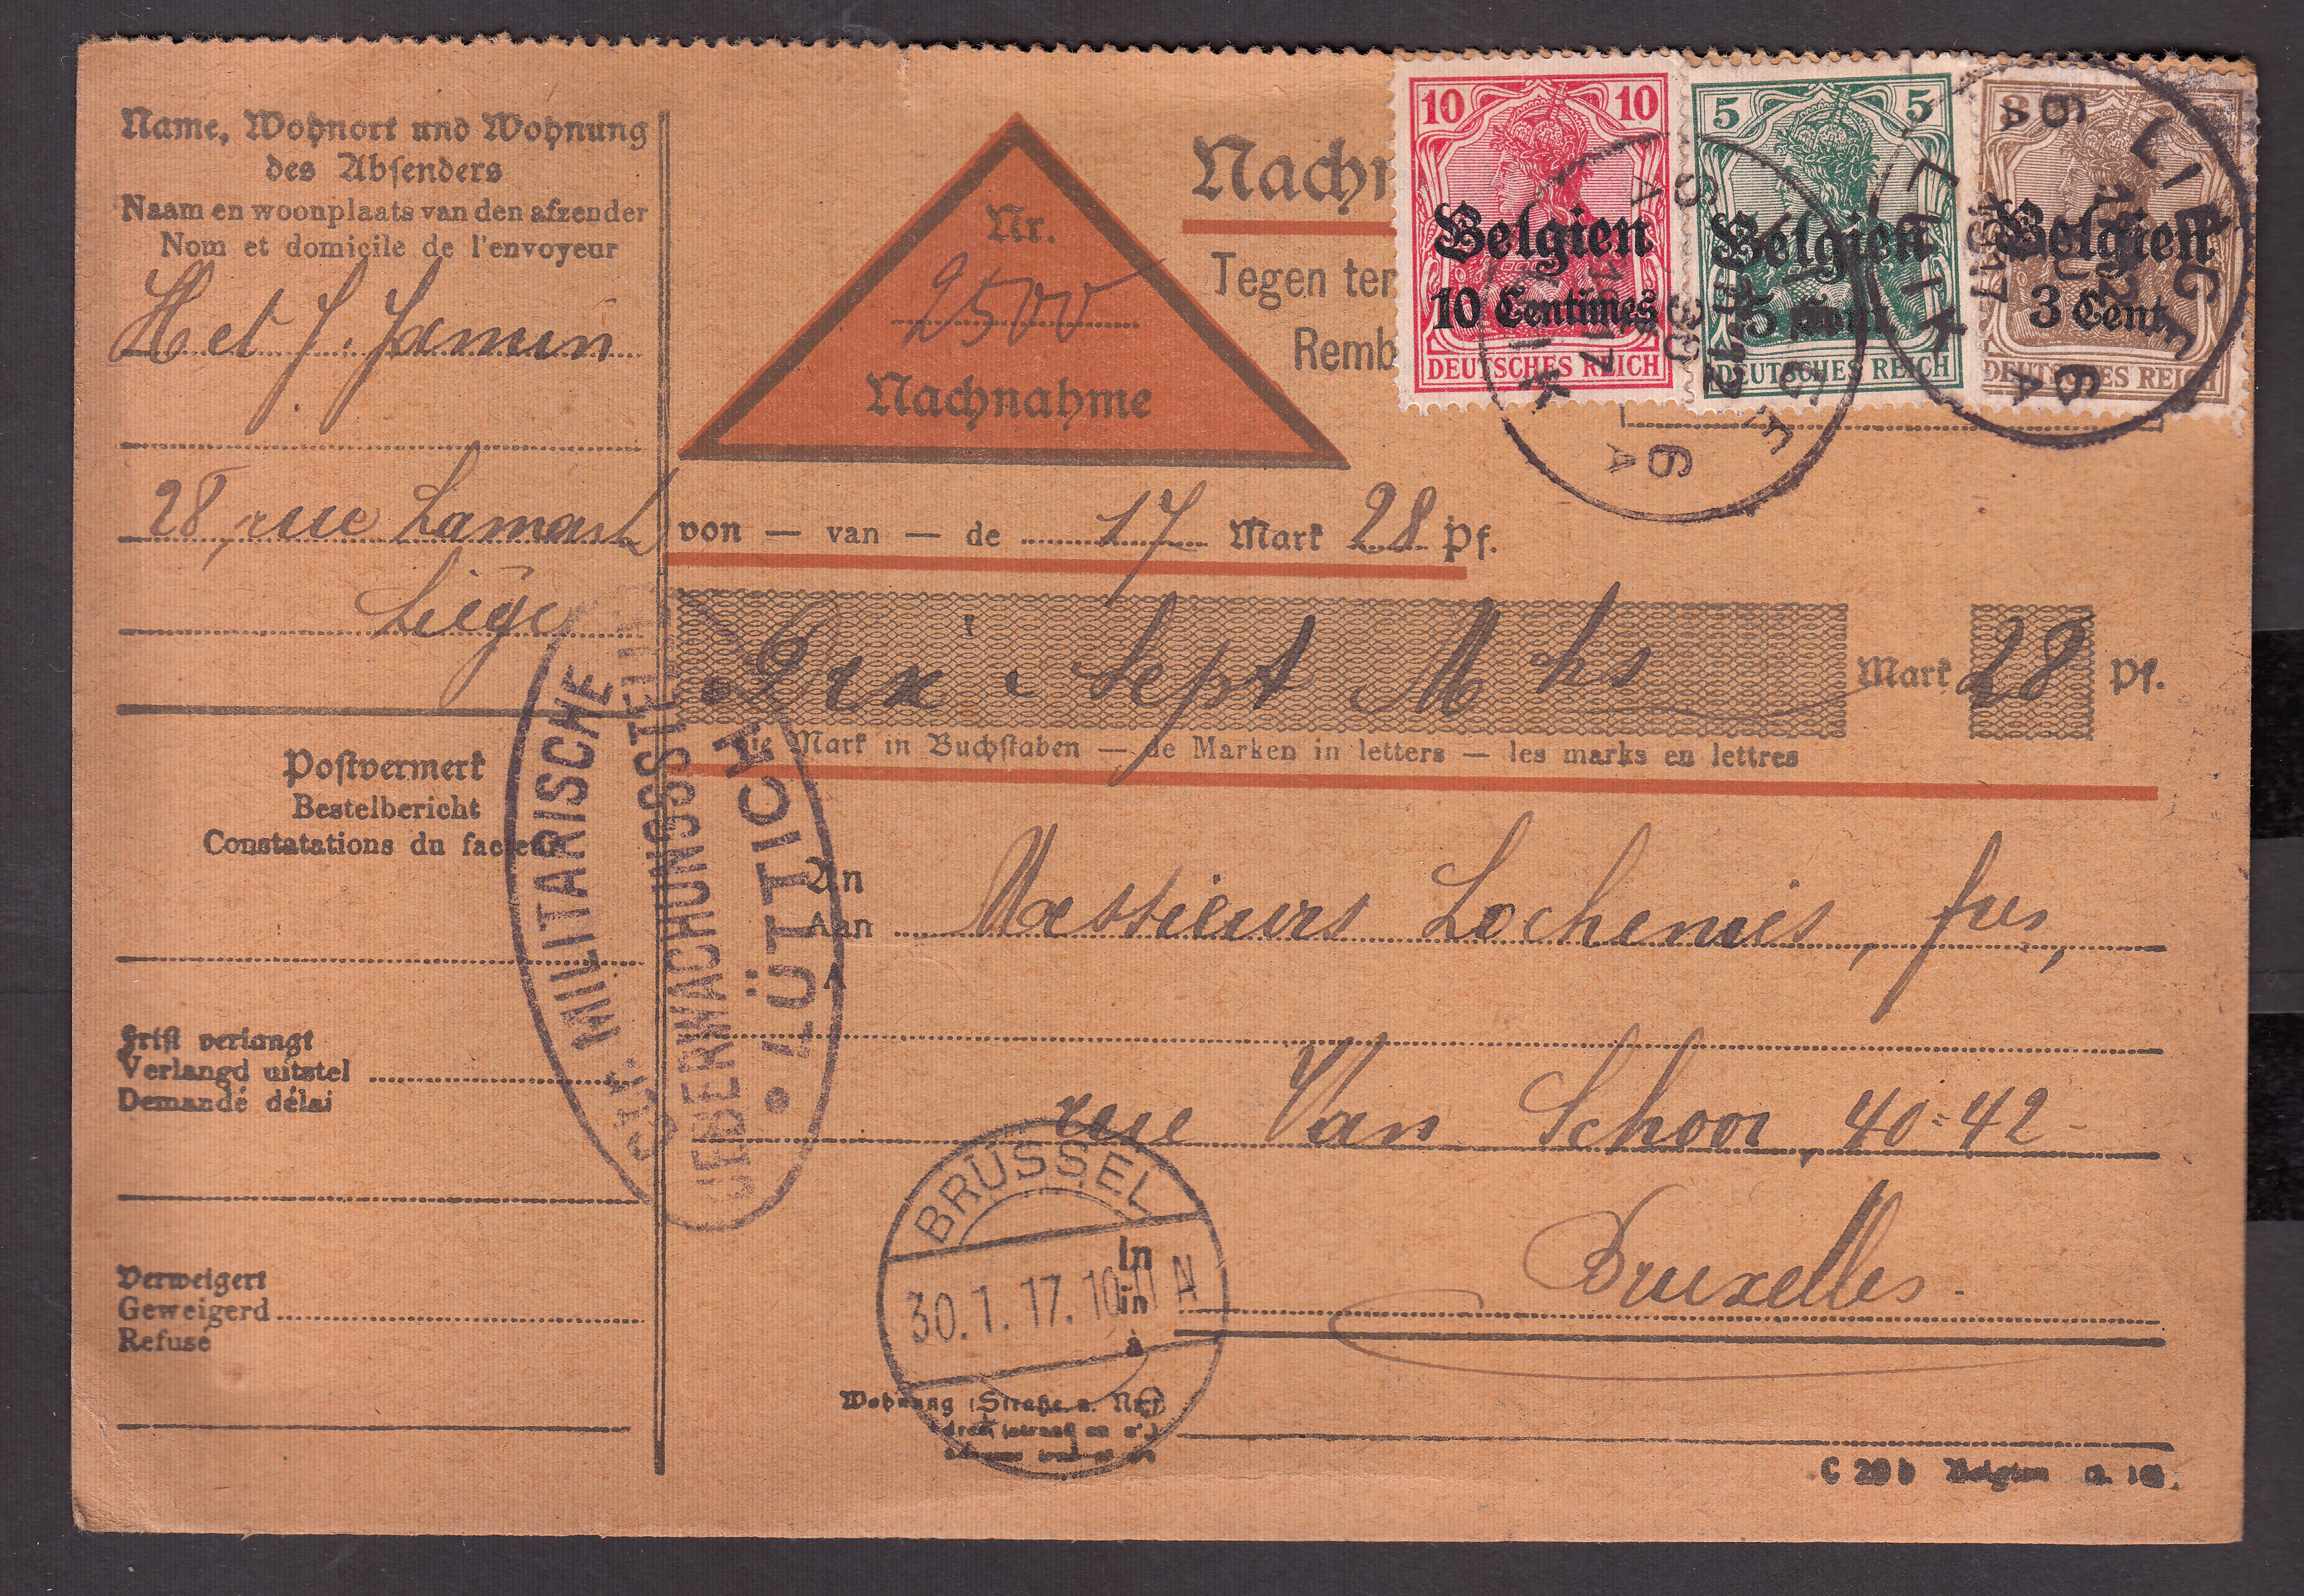 Name, Wohnort und Wohnung
des Absenders
Naam en woonplaats van den afzender
Nom et domicile de l'envoyeur
H et J. Jamin
28, rue Lamarck
Liége
Postvermerk
Bestelbericht
Constatations du facteur
Frist verlangt
Verlangd uitstel
Demandé délai
Verweigert
Geweigerd
Refusé
Nr.
2500
Nachnahme
Nachn
Tegen ter
Remb
10 10
Belgien
10 Centimes
DEUTSCHES REICH
5 5
Belgien
5 Cent
DEUTSCHES REICH
3
Belgien
3 Cent
DEUTSCHES REICH
LIÉGE
LUIK
6A
6A
von — van — de 17 Mark 28 Pf.
Dix Sept Mks Mark 28 Pf.
die Mark in Buchstaben — de Marken in letters — les marks en lettres
MILITÄRISCHE
UEBERWACHUNGSSTELLE
LÜTTICH
An
Aan
A
Messieurs Lochemies, frs,
rue Van Schoor, 40-42-
Bruxelles
In
in
à
BRÜSSEL
30.1.17.10-11 N
Wohnung (Straße u. Nr.)
C 29 b Belgien